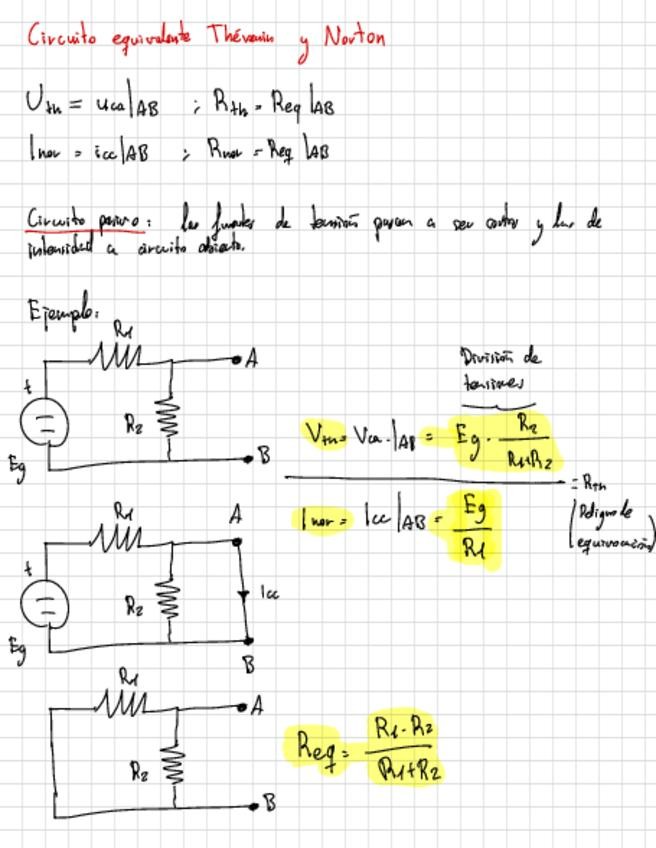 Circuito equivalente Thévenin y Norton
Uth = uca|AB ; Rth = Req|AB
Inor = icc|AB ; Rnor = Req|AB
Circuito pasivo: las fuentes de tensión pasan a ser cortos y las de
intensidad a circuito abierto.
Ejemplo:
R1
A
+
R2
Eg
B
División de
tensiones
Vth = Vca.|AB = Eg · R2 / R1+R2
= Rth
(Peligro de
equivocación)
Inor = Icc|AB = Eg / R1
R1
A
+
R2
Icc
Eg
B
R1
A
R2
B
Req = R1·R2 / R1+R2